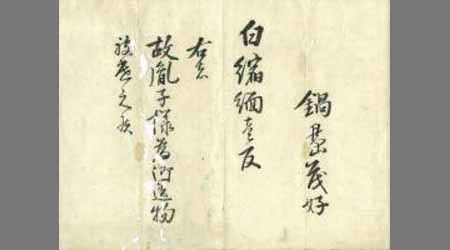 鍋島茂好
白縮緬壱反
右者
故胤子様為御遺物
被進之候